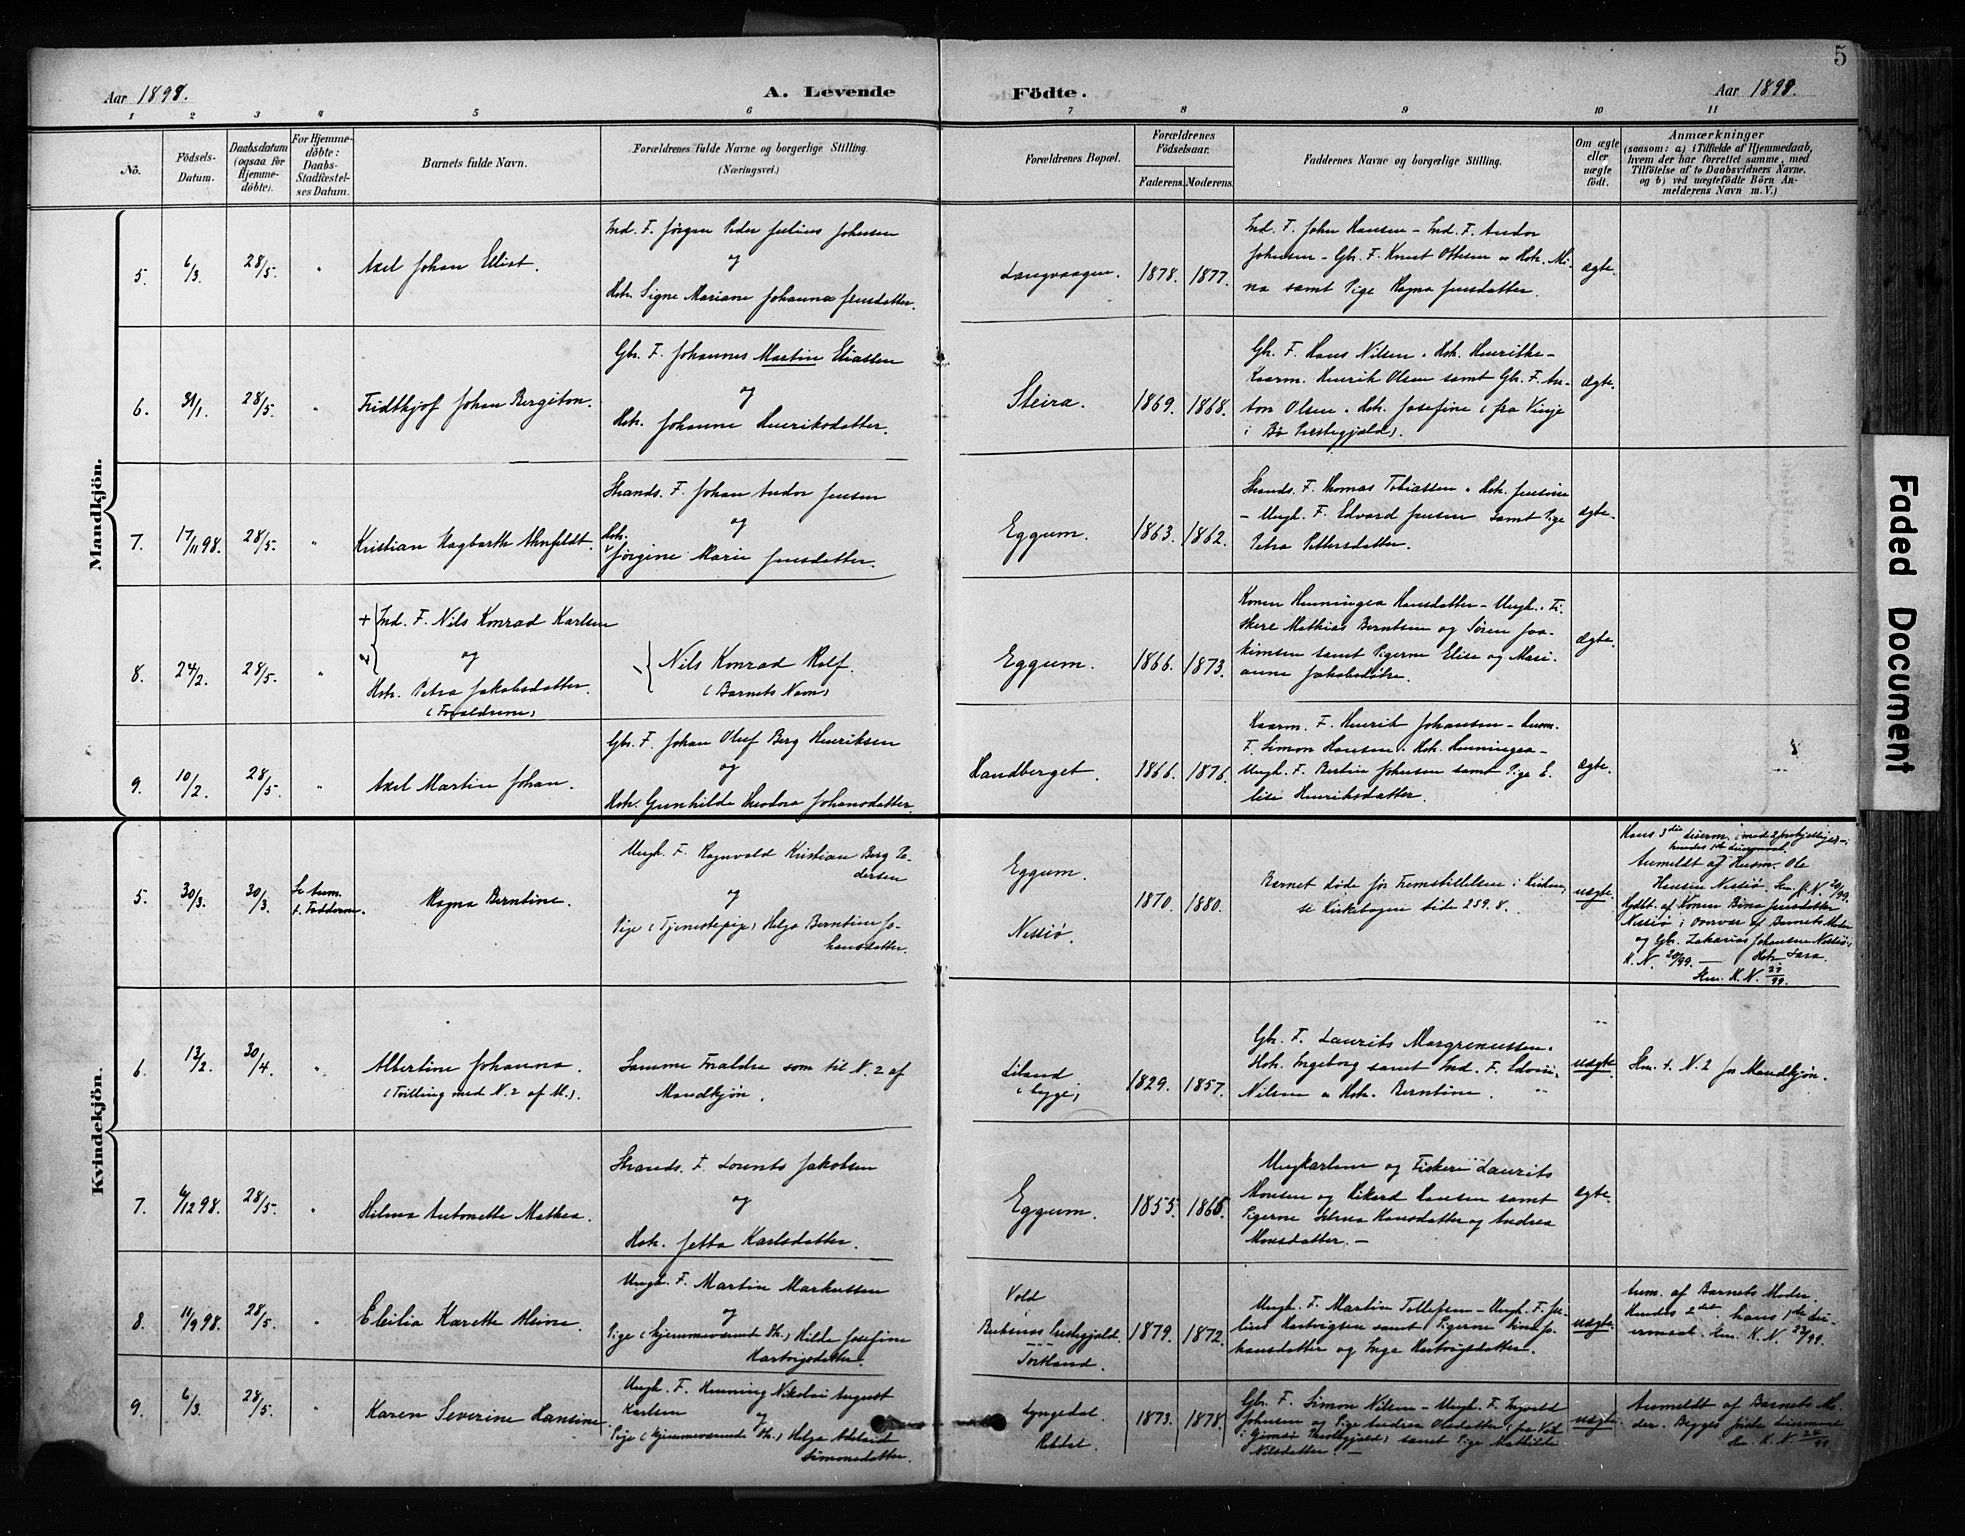 5
Aar 1898.
A. Levende Födte.
Aar 1898.
1 2 3 4 5 6 7 8 9 10 11
No.
Födsels-Datum.
Daabsdatum (ogsaa for Hjemme-döbte).
For Hjemme-döbte: Daabs-Stadfæstel-ses Datum.
Barnets fulde Navn.
Forældrenes fulde Navne og borgerlige Stilling
(Næringsvei.)
Forældrenes Bopæl.
Forældrenes Födselsaar.
Faderens. Moderens.
Faddernes Navne og borgerlige Stilling.
Om ægte eller uægte födt.
Anmærkninger
(saasom: a) i Tilfælde af Hjemmedaab, hvem der har forrettet samme, med Tilföielse af to Daabsvidners Navne, og b) ved uægtefödte Börn An-melderens Navn m. V.)
Mandkjön.
5. 6/3. 28/5. " Axel Johan Elliot.
Ind. F. Jørgen Peder Julius Johnsen
og
Hstr. Signe Mariane Johanna Jensdatter.
Langvaagen. 1878. 1877.
Ind. F. John Hansen – Ind. F. Andor
Johnsen – Gbr. F. Knut Ottesen & Hstr. Mi-
na samt Pige Ragna Jensdatter.
ægte.
6. 31/1. 28/5. " Fridthjof Johan Bergiton.
Gbr. F. Johannes Martin Eliassen
og
Hstr. Johanne Henriksdatter.
Steira. 1869. 1868.
Gbr. F. Hans Nilsen & Hstr. Henrikke –
Kaarm. Henrik Olsen samt Gbr. F. An-
ton Olsen & Hstr. Josefine (fra Vinje
i Bø Præstegjæld).
ægte.
7. 17/11 98. 28/5. " Kristian Hagbarth Ahnfeldt.
Strands. F. Johan Andor Jensen
og
Hstr.
Jørgine Marie Jensdatter.
Eggum. 1863. 1862.
Strands. F. Thomas Tobiassen & Hstr. Jensine
– Ungk. F. Edvard Jensen samt Pige
Petra Pettersdatter.
ægte.
8. 24/2. 28/5. "
Ind. F. Nils Konrad Karlsen
og
Hstr. Petra Jakobsdatter.
(Forældrene)
Nils Konrad Rolf.
(Barnets Navn)
Eggum. 1866. 1873.
Konen Henningea Hansdatter – Ungk. Fi-
skere Mathias Berntsen og Søren Joa-
kimsen samt Pigerne Elise og Mari-
anne Jakobsdøtre.
ægte.
9. 10/2. 28/5. " Axel Martin Johan.
Gbr. F. Johan Oluf Berg Henriksen
og
Hstr. Gunhilde Theodora Johansdatter.
Sandberget. 1866. 1876.
Kaarm. F. Henrik Johansen – Husm.
F. Simon Hansen & Hstr. Henningea –
Ungk. F. Bertin Johnsen samt Pige E-
lise Henriksdatter.
ægte.
8
Kvindekjön.
5. 30/3. 30/3. Se Anm. f. Fadderne. Magna Berntine.
Ungk. F. Ragnvald Kristian Berg Pe-
dersen
og
Pige (Tjenestepige) Helga Berntine Jo-
hansdatter.
Eggum
Nessiø.
1870. 1880.
Barnet døde før Fremstillelsen i Kirken,
se Kirkebogen side 259. 8.
uægte.
Anmeldt af Husm. Ole
Hansen Nessiø, Skr. K. N. 20/99.
Hjdbt. af Konen Jensdatter
Nessiø i Overvær af Barnets Moder
og Gbr. Zakarias Johansen Nessiø &
K. N. 20/99. – Hstr. Sara.
Skr. K. N. 21/99.
6. 13/2. 30/4. " Albertine Johanna.
(Tvilling med N. 2 af M.).
Samme Forældre som til N. 2 af
Mandkjøn.
Liland
(bygs)
1829. 1857.
Gbr. F. Laurits Margreniussen &
Hstr. Ingeborg samt Ind. F. Edvin
Nilsen & Hstr. Berntine.
uægte.
Skr. t. N. 2 for Mandkjøn.
7. 6/12 98. 28/5. " Hilma Antonette Mathea.
Strands. F. Lorents Jakobsen
og
Hstr. Jetta Karlsdatter.
Eggum. 1855. 1866.
Ungkarlene og Fiskere Laurits
Monsen og Rikard Hansen samt
Pigerne Hansdatter og Andrea
Monsdatter. –
ægte.
8. 11/9 98. 28/5. " Elilia Karette Meine.
Ungk. F. Martin Markussen
og
Pige (hjemmeværende Str.) Hilda Josefine
Hartvigsdatter.
Vold
Buksnæs Præstegjæld.
Tortland.
1879. 1872.
Ungk. F. Martin Tollefsen – Ungk. F. Ju-
lius Hartvigsen samt Pigerne Jo-
hansdatter og Inga Hartvigsdatter.
uægte.
Anm. af Barnets Moder.
Hendes 2det, hans 1ste Lei-
ermaal. Skr. K. N. 23/99.
9. 6/3. 28/5. " Karen Severine Hansine
Ungk. F. Henning Nikolai August
Karlsen og
Pige (hjemmeværende Str.) Helga Adelaide
Simonsdatter.
Lyngedal.
1873. 1878.
Gbr. F. Simon Nilsen – Ungk. F. Ingvald
Johnsen og Pige Andrea Olesdatter (fra
i Gimsø Præstegjæld) samt Pige Mathilde
Nilsdatter. –
uægte.
Anmeldt af Barnets Mo-
der. Begges første Leiermaal
Skr. K. N. 24/99
Faded Document